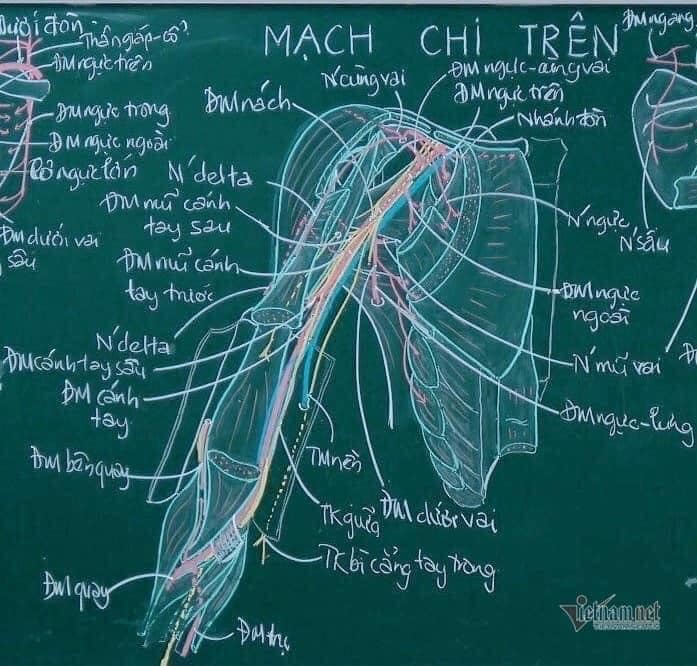 MẠCH CHI TRÊN
Dưới đòn
Thân giáp-cổ
ĐM ngực trên
ĐM ngực trong
ĐM ngực ngoài
Cơ ngực lớn
ĐM dưới vai
sâu
N' cùng vai
ĐM ngực-cùng vai
ĐM ngực trên
Nhánh đòn
ĐM nách
N' delta
ĐM mũ cánh
tay sau
ĐM mũ cánh
tay trước
N' delta
ĐM cánh tay sâu
ĐM cánh
tay
ĐM bên quay
ĐM quay
ĐM trụ
TM nền
TK giữa
ĐM dưới vai
TK bì cẳng tay trong
N' ngực
ĐM ngực
ngoài
N' mũ vai
ĐM ngực-lưng
ĐM ngang
N' sâu
Vietnam.net